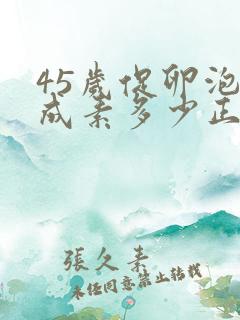 45歲促卵泡
成素多少正
張久素
未經同意禁止轉載